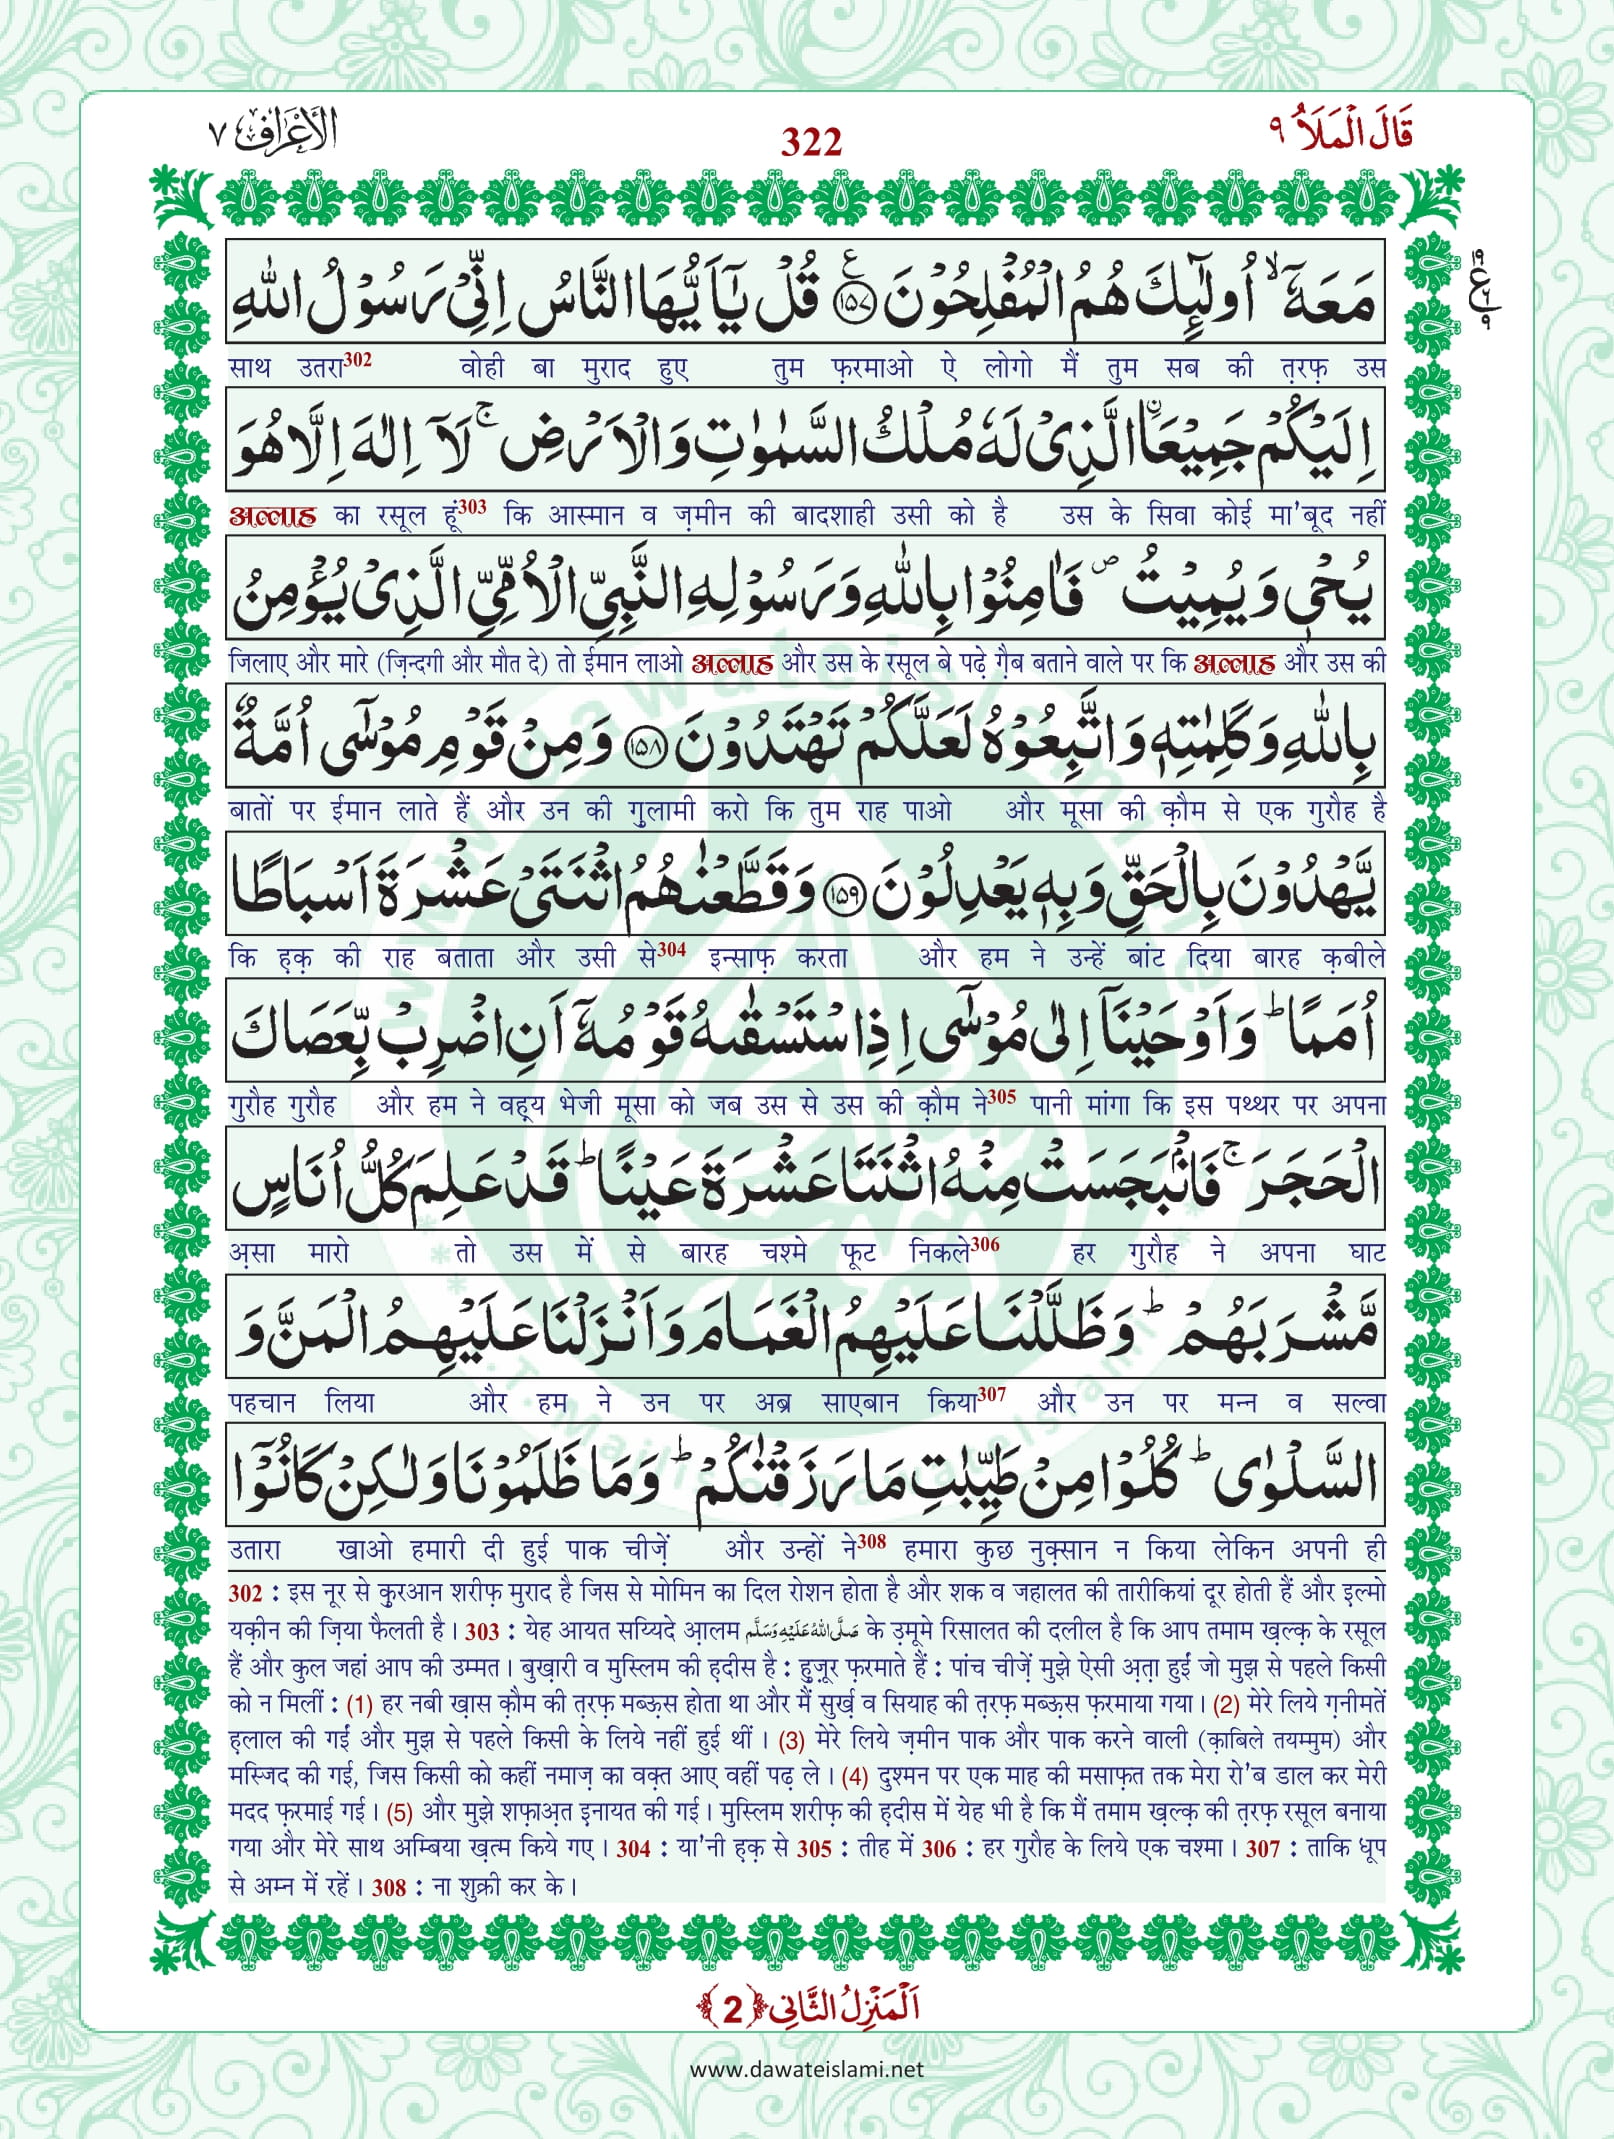 الأعراف ٧
322
قَالَ الْمَلَأُ ٩
مَعَهٗۤ ۙ اُولٰٓىِٕكَ هُمُ الْمُفْلِحُوْنَ ﴿۱۵۷﴾ ع قُلْ یٰۤاَیُّهَا النَّاسُ اِنِّیْ رَسُوْلُ اللّٰهِ
साथ उतरा302 वोही बा मुराद हुए तुम फ़रमाओ ऐ लोगो मैं तुम सब की त़रफ़ उस
اِلَیْكُمْ جَمِیْعَاﰳ الَّذِیْ لَهٗ مُلْكُ السَّمٰوٰتِ وَ الْاَرْضِ ۚ لَاۤ اِلٰهَ اِلَّا هُوَ
अल्लाह का रसूल हूं303 कि आस्मान व ज़मीन की बादशाही उसी को है उस के सिवा कोई मा'बूद नहीं
یُحْیٖ وَ یُمِیْتُ ۪ فَاٰمِنُوْا بِاللّٰهِ وَ رَسُوْلِهِ النَّبِیِّ الْاُمِّیِّ الَّذِیْ یُؤْمِنُ
जिलाए और मारे (ज़िन्दगी और मौत दे) तो ईमान लाओ अल्लाह और उस के रसूल बे पढ़े ग़ैब बताने वाले पर कि अल्लाह और उस की
بِاللّٰهِ وَ كَلِمٰتِهٖ وَ اتَّبِعُوْهُ لَعَلَّكُمْ تَهْتَدُوْنَ ﴿۱۵۸﴾ وَ مِنْ قَوْمِ مُوْسٰۤى اُمَّةٌ
बातों पर ईमान लाते हैं और उन की ग़ुलामी करो कि तुम राह पाओ और मूसा की क़ौम से एक गुरौह है
یَّهْدُوْنَ بِالْحَقِّ وَ بِهٖ یَعْدِلُوْنَ ﴿۱۵۹﴾ وَ قَطَّعْنٰهُمُ اثْنَتَیْ عَشْرَةَ اَسْبَاطًا
कि ह़क़ की राह बताता और उसी से304 इन्साफ़ करता और हम ने उन्हें बांट दिया बारह क़बीले
اُمَمًا ؕ وَ اَوْحَیْنَاۤ اِلٰى مُوْسٰۤى اِذِ اسْتَسْقٰىهُ قَوْمُهٗۤ اَنِ اضْرِبْ بِّعَصَاكَ
गुरौह गुरौह और हम ने वह़्य भेजी मूसा को जब उस से उस की क़ौम ने305 पानी मांगा कि इस पथ्थर पर अपना
الْحَجَرَ ۚ فَانْۢبَجَسَتْ مِنْهُ اثْنَتَا عَشْرَةَ عَیْنًا ؕ قَدْ عَلِمَ كُلُّ اُنَاسٍ
अ़सा मारो तो उस में से बारह चश्मे फूट निकले306 हर गुरौह ने अपना घाट
مَّشْرَبَهُمْ ؕ وَ ظَلَّلْنَا عَلَیْهِمُ الْغَمَامَ وَ اَنْزَلْنَا عَلَیْهِمُ الْمَنَّ وَ
पहचान लिया और हम ने उन पर अब्र साएबान किया307 और उन पर मन्न व सल्वा
السَّلْوٰى ؕ كُلُوْا مِنْ طَیِّبٰتِ مَا رَزَقْنٰكُمْ ؕ وَ مَا ظَلَمُوْنَا وَ لٰكِنْ كَانُوْۤا
उतारा खाओ हमारी दी हुई पाक चीज़ें और उन्हों ने308 हमारा कुछ नुक़्सान न किया लेकिन अपनी ही
302 : इस नूर से क़ुरआन शरीफ़ मुराद है जिस से मोमिन का दिल रोशन होता है और शक व जहालत की तारीकियां दूर होती हैं और इ़ल्मो
यक़ीन की ज़िया फैलती है। 303 : येह आयत सय्यिदे आ़लम صَلَّى اللهُ عَلَيْهِ وَسَلَّم के उ़मूमे रिसालत की दलील है कि आप तमाम ख़ल्क़ के रसूल
हैं और कुल जहां आप की उम्मत। बुख़ारी व मुस्लिम की ह़दीस है : हुज़ूर फ़रमाते हैं : पांच चीज़ें मुझे ऐसी अ़त़ा हुईं जो मुझ से पहले किसी
को न मिलीं : (1) हर नबी ख़ास क़ौम की त़रफ़ मब्ऊ़स होता था और मैं सुर्ख़ व सियाह की त़रफ़ मब्ऊ़स फ़रमाया गया। (2) मेरे लिये ग़नीमतें
ह़लाल की गईं और मुझ से पहले किसी के लिये नहीं हुई थीं। (3) मेरे लिये ज़मीन पाक और पाक करने वाली (क़ाबिले तयम्मुम) और
मस्जिद की गई, जिस किसी को कहीं नमाज़ का वक़्त आए वहीं पढ़ ले। (4) दुश्मन पर एक माह की मसाफ़त तक मेरा रो'ब डाल कर मेरी
मदद फ़रमाई गई। (5) और मुझे शफ़ाअ़त इ़नायत की गई। मुस्लिम शरीफ़ की ह़दीस में येह भी है कि मैं तमाम ख़ल्क़ की त़रफ़ रसूल बनाया
गया और मेरे साथ अम्बिया ख़त्म किये गए। 304 : या'नी ह़क़ से 305 : तीह में 306 : हर गुरौह के लिये एक चश्मा। 307 : ताकि धूप
से अम्न में रहें। 308 : ना शुक्री कर के।
اَلْمَنْزِلُ الثَّانِی ﴿2﴾
www.dawateislami.net